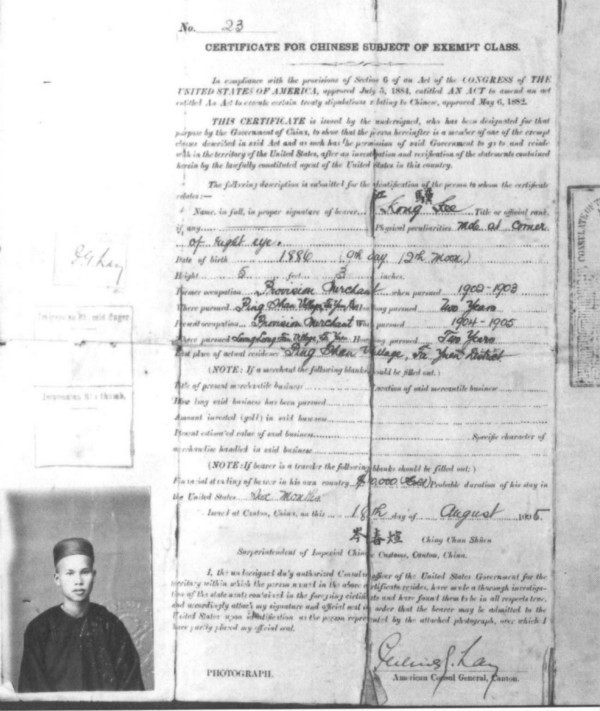 No. 23
CERTIFICATE FOR CHINESE SUBJECT OF EXEMPT CLASS.
In compliance with the provisions of Section 6 of an Act of the CONGRESS of THE
UNITED STATES OF AMERICA, approved July 5, 1884, entitled AN ACT to amend an act
entitled An Act to execute certain treaty stipulations relating to Chinese, approved May 6, 1882.
THIS CERTIFICATE is issued by the undersigned, who has been designated for that
purpose by the Government of China, to show that the person hereinafter is a member of one of the exempt
classes described in said Act and as such has the permission of said Government to go to and reside
within the territory of the United States, after an investigation and verification of the statements contained
herein by the lawfully constituted agent of the United States in this country.
The following description is submitted for the identification of the person to whom the certificate
relates:—
Name, in full, in proper signature of bearer Kong Lee Title or official rank,
if any, Physical peculiarities Mole at Corner
of Right eye.
Date of birth 1886 (9th day 12th Moon.)
Height 5 feet 3 inches.
Former occupation Provision Merchant when pursued 1902-1903
Where pursued Ping Shan Village, long pursued Two Years
Present occupation Provision Merchant When pursued 1904-1905
Where pursued Village, How long pursued Two Years
Last place of actual residence Ping Shan Village, District
(NOTE: If a merchant the following blanks should be filled out.)
Title of present mercantile business Location of said mercantile business
How long said business has been pursued
Amount invested (gold) in said business
Present estimated value of said business Specific character of
merchandise handled in said business
(NOTE: If bearer is a traveler the following blanks should be filled out:)
Financial standing of bearer in his own country Probable duration of his stay in
the United States Six Months
Issued at Canton, China, on this 18th day of August 1905.
岑喜煊 Ching Chun Shüen
Superintendent of Imperial Chinese Customs, Canton, China.
I, the undersigned duly authorized Consular officer of the United States Government for the
territory within which the person named in the above certificate resides, have made a thorough investiga-
tion of the statements contained in the foregoing certificate and have found them to be in all respects true,
and accordingly attach my signature and official seal in order that the bearer may be admitted to the
United States upon identification as the person represented by the attached photograph, over which I
have partly placed my official seal.
PHOTOGRAPH.
American Consul General, Canton.